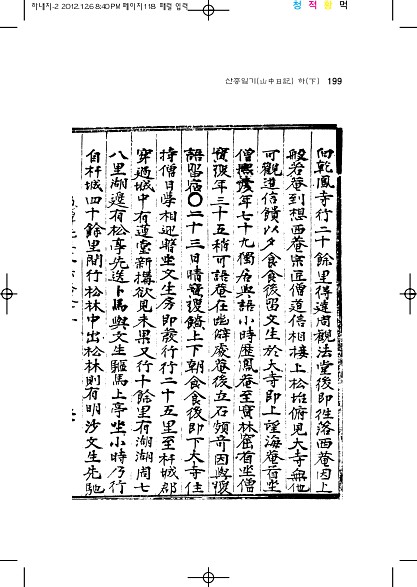 하내지-2 2012.12.6 8:40 PM 페이지118 패평 입력
청 적 황 먹
산중일기(山中日記) 하(下) 199
向乾鳳寺行二十餘里得達周觀法堂後即往落西菴因上
般若菴到想西菴宗匠僧道信相接上松坮俯見大寺無他
可觀道信饋以夕食食後留文生於大寺即上望海菴首坐
僧熙瓊年七十九獨居與語小時歷鳳菴至寶林窟首坐僧
寶俊年三十五稍可語菴在幽僻處菴後立石頗奇因與俊
語留宿〇二十三日晴寶俊鐃上下朝食食後即下大寺住
持僧日學相迎暫坐文生房即發行行二十五里至杆城郡
穿過城中有蓮堂新構欲見未果又行十餘里有湖湖周七
八里湖邊有松亭先送卜馬與文生驅馬上亭坐小時乃行
自杆城四十餘里間行松林中出松林則有明沙文生先馳